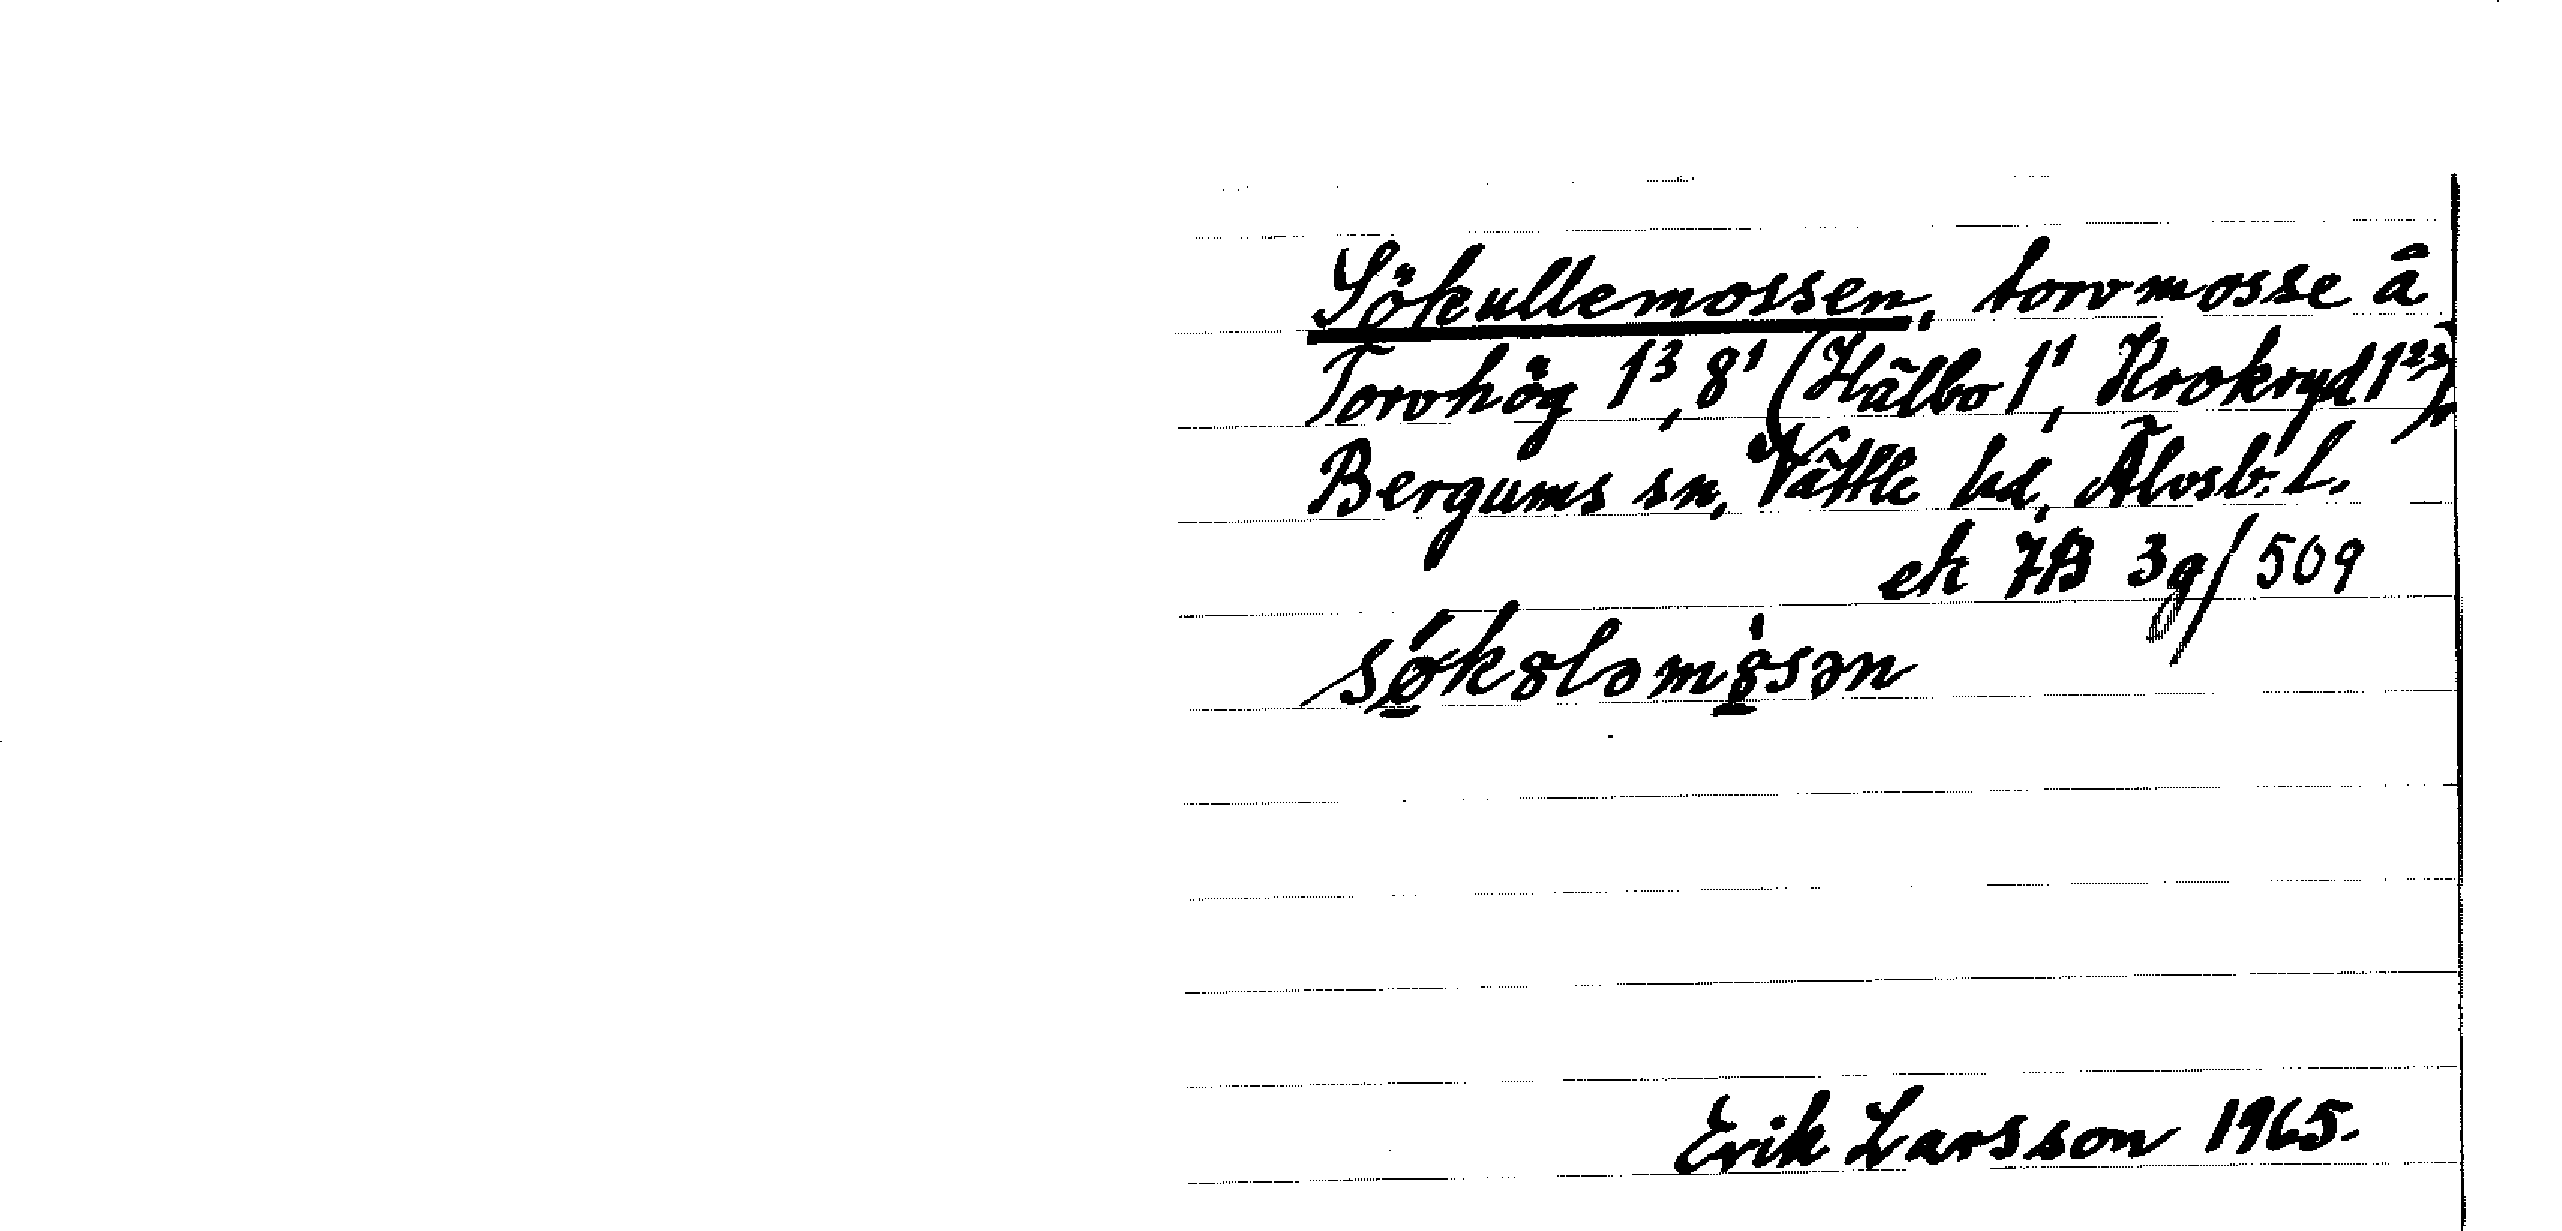 Sökullemossen, torvmosse å
Torvhög 1³, 8¹ (Hälbo 1¹, Krokryd 1²³)
Bergums sn, Vättle hd, Älvsb. l.
ek 7B 3g/509
søkꝏləmꝏsən
Erik Larsson 1965.